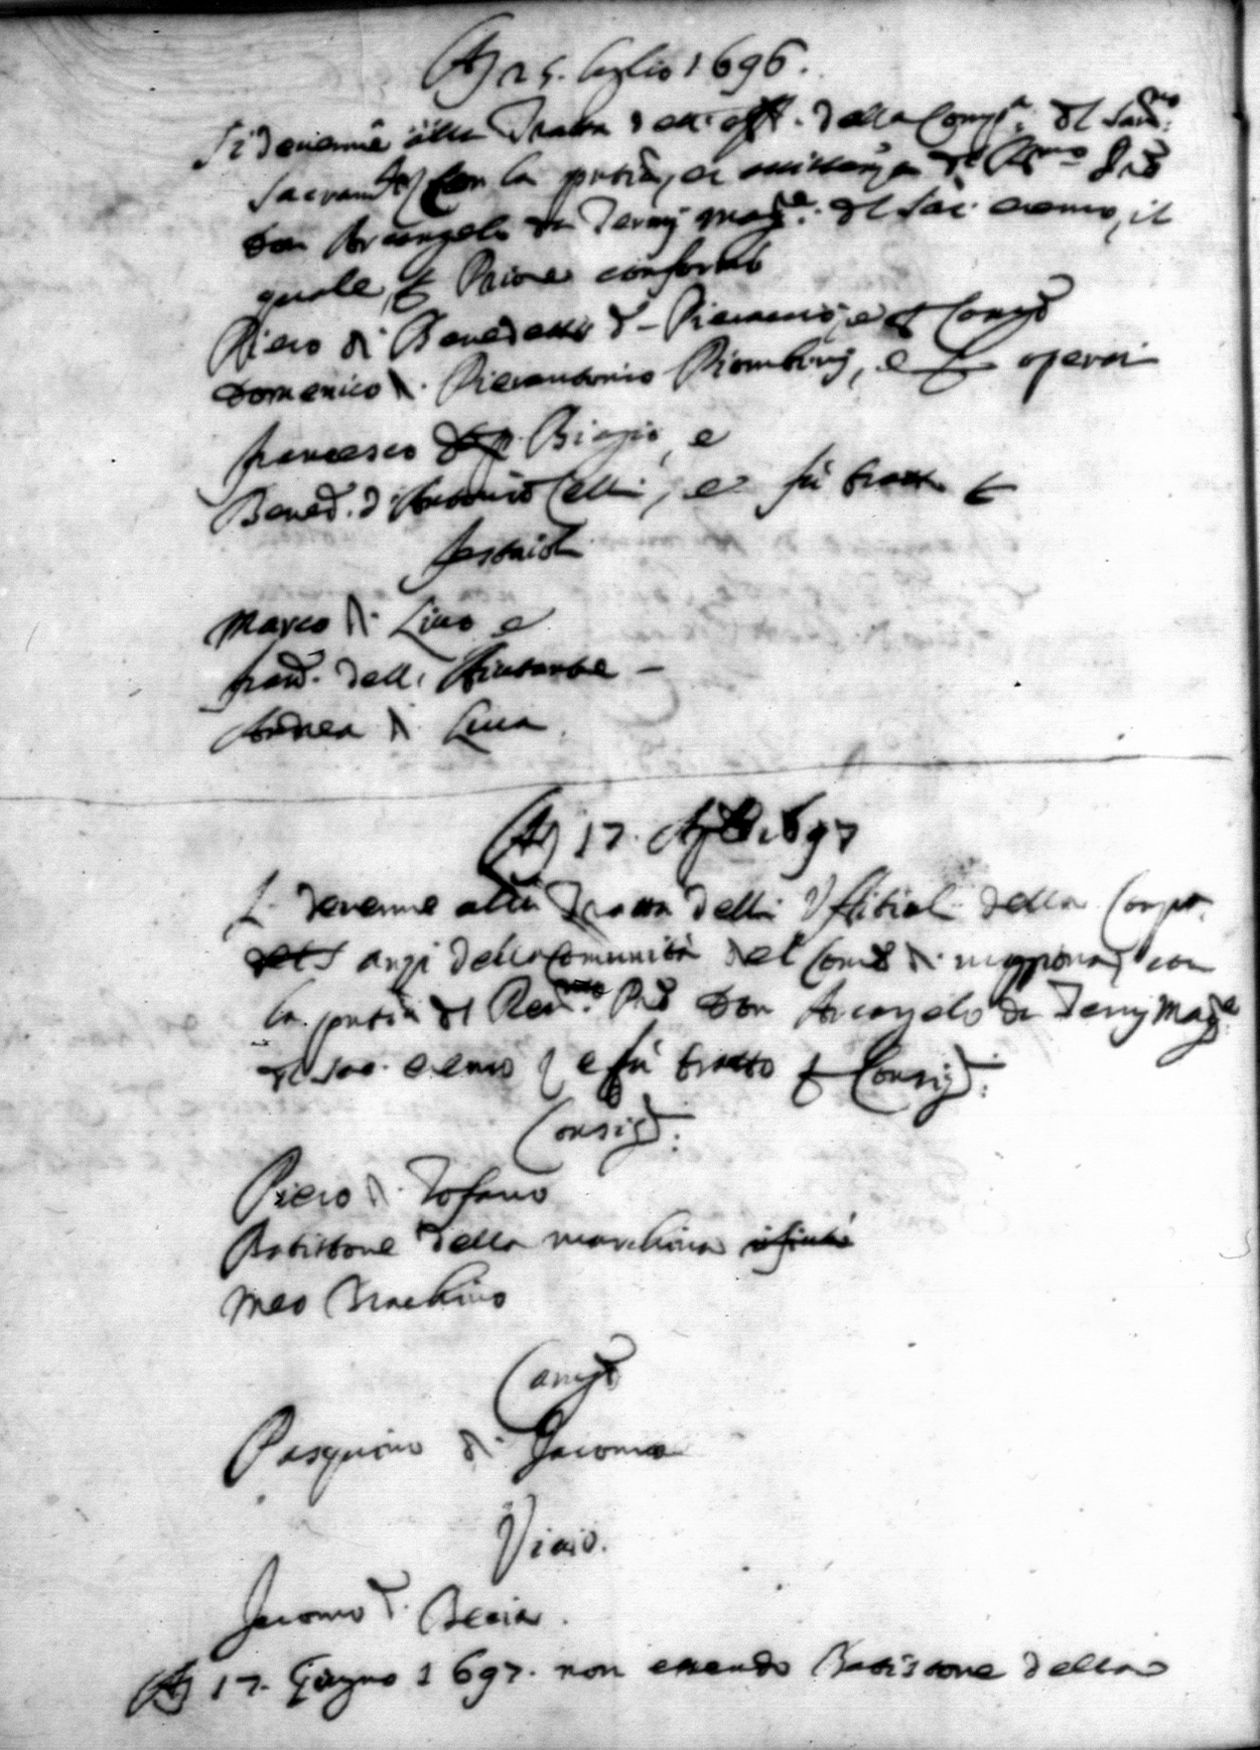 A 25. luglio 1696.
Si devenne alla Tratta delli off. della Comp.a del Sant.mo
Sacram.to con la pntia, et assistenza del R.mo Prê
Don Arcangelo da Terny Mag.re del Sac. eremo, il
quale, p Priore confermò
Piero di Benedetto d-, e p Camg.o
Domenico di Pierantonio Piombini, e p operai
francesco di Biagio, e
Bened. d'Antonio Celli, e fù tratto p
festaioli
Marco di Lino e
fran.o dell'Aiutante -
Andrea di Luca
A 17. 1697
Si devenne alla Tratta delli Uffitiali della Comp.a
del S anzi della Comunità del Com.e di moggiona, con
la pntia del Rev.mo Prê Don Arcangelo da Terny Mag.re
del Sac. eremo, e fù tratto p Consig.:
Consig.:
Piero di Tofano
Batistone della marchina rifiutò
Meo Brachino
Camg.o
Pasquino di Jacomo
Viaio.
Jacomo d. Becia.
A 17. Giugno 1697. non essendo Batistone della